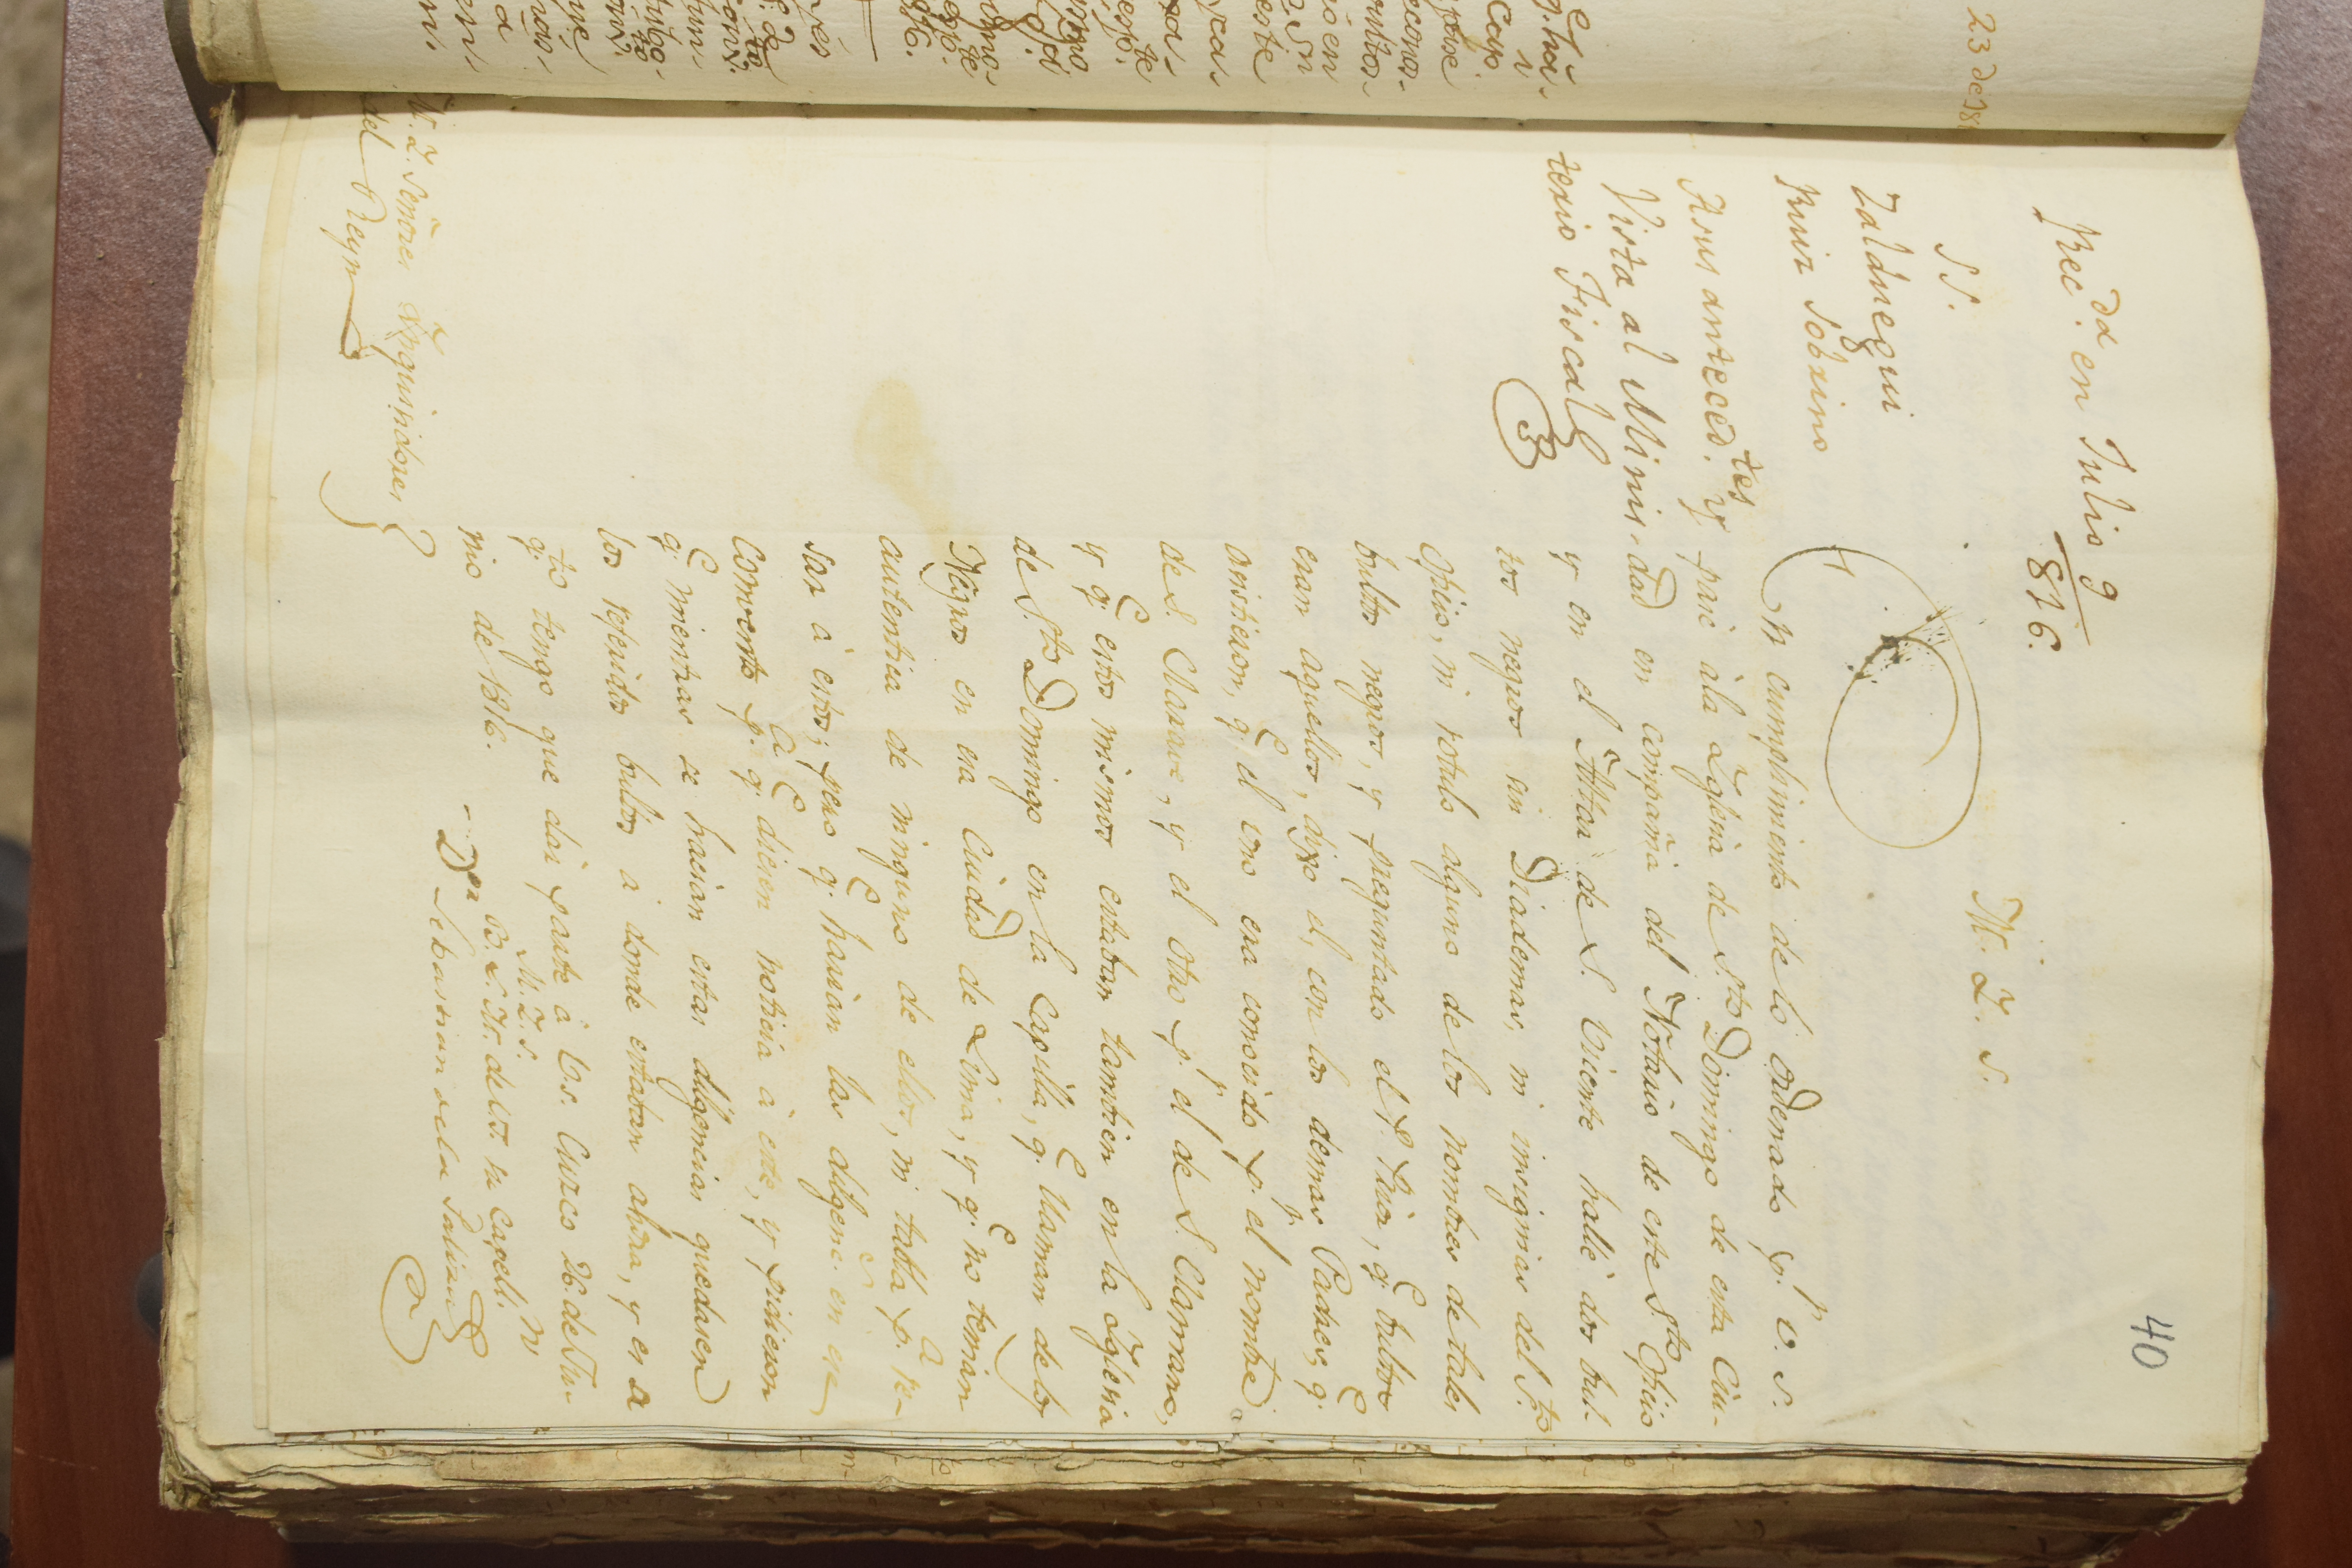 40
Rec.da en Julio 9
816.
SS.
Zalduegui
Ruiz Sobrino
A sus anteced.tes y
Vista al Minis-
terio Fiscal
M. I. S.
En cumplimiento de lo ordenado p.r V. S.
pasé à la Iglesia de S.to Domingo de esta Ciu-
dad en compañia del Notario de este S.to Ofi͠cio
y en el Altar de S. Vicente hallé dos bul-
tos negros sin Diademas, ni insignias del S.to
Ofi͠cio, ni rotulo alguno de los nombres de tales
bultos negros, y preguntado el P. Prior, q.e bultos
eran aquellos, dixo el, con los demas Padres, q.e
asistieron, q.e el uno era conocido p.r el nombre
de S. Claraue, y el otro p.r el de S. Clarrano,
y q.e estos mismos estaban tambien en la Iglesia
de S.to Domingo en la Capilla, q.e llaman de los
Negros en esa Ciudad de Lima, y q.e no tenian
autentica de ninguno de ellos, ni tabla p.a re-
sar à estos; pero q.e harian las diligenc.s en que
Convento p.a q.e diesen noticia à este, y pidieron
q.e mientras se hacian estas diligencias quedasen
los referidos bultos à donde estaban ahora, y es a
q.to tengo que dar parte à V.S. Cuzco 26. de Ju-
nio de 1816.
M. I. S.
B. L. M. de V.S. su Capell.n
D.or Sebastian de la Paliza
M. I. Señores Inquisidores
del Reyno
23 de